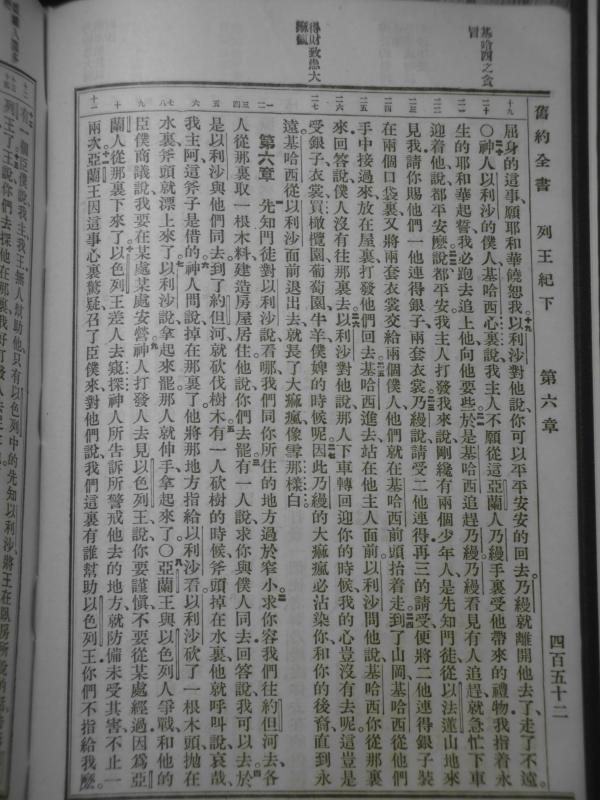 舊約全書 列王紀下 第六章 四百五十二
基哈西之貪冒
得財致患大痲瘋
屈身的這事、願耶和華饒恕我。以利沙對他說、你可以平平安安的回去。乃縵就離開他去了、走了不遠。
〇神人以利沙的僕人基哈西心裏說、我主人不願從這亞蘭人乃縵手裏受他帶來的禮物、我指着永
生的耶和華起誓、我必跑去追上他、向他要些。於是基哈西追趕乃縵、乃縵看見有人追趕、就急忙下車
迎着他說、都平安麽。說都平安、我主人打發我來說、剛纔有兩個少年人、是先知門徒、從以法蓮山地來
見我、請你賜他們一他連得銀子、兩套衣裳。乃縵說、請受二他連得、再三的請受、便將二他連得銀子裝
在兩個口袋裏、又將兩套衣裳交給兩個僕人、他們就在基哈西前頭抬着走。到了山岡、基哈西從他們
手中接過來、放在屋裏、打發他們回去。基哈西進去站在他主人面前、以利沙問他說、基哈西、你從那裏
來、回答說、僕人沒有往那裏去。以利沙對他說、那人下車轉回迎你的時候、我的心豈沒有去呢、這豈是
受銀子、衣裳、買橄欖園、葡萄園、牛羊、僕婢的時候呢。因此乃縵的大痲瘋必沾染你和你的後裔、直到永
遠。基哈西從以利沙面前退出去、就長了大痲瘋、像雪那樣白。
第六章 先知門徒對以利沙說、看哪、我們同你所住的地方過於窄小。求你容我們往約但河去、各
人從那裏取一根木料、建造房屋居住、他說、你們去罷。有一人說、求你與僕人同去、回答說、我可以去。於
是以利沙與他們同去、到了約但河、就砍伐樹木。有一人砍樹的時候、斧頭掉在水裏、他就呼叫說、哀哉、
我主阿、這斧子是借的。神人問說、掉在那裏了、他將那地方指給以利沙看、以利沙砍了一根木頭、拋在
水裏、斧頭就漂上來了。以利沙說、拿起來罷、那人就伸手拿起來了。〇亞蘭王與以色列人爭戰、和他的
臣僕商議說、我要在某處某處安營。神人打發人去見以色列王說、你要謹愼、不要從某處經過、因爲亞
蘭人從那裏下來了。以色列王差人去窺探神人所告訴所警戒他去的地方、就防備未受其害、不止一
兩次。亞蘭王因這事心裏驚疑、召了臣僕來、對他們說、我們這裏有誰幫助以色列王、你們不指給我麽。
有一個臣僕說、我主我王、無人幫助他、只有以色列中的先知以利沙、將王在臥房所說的
列王了。王說、你們去探他在那裏、我好打發人去